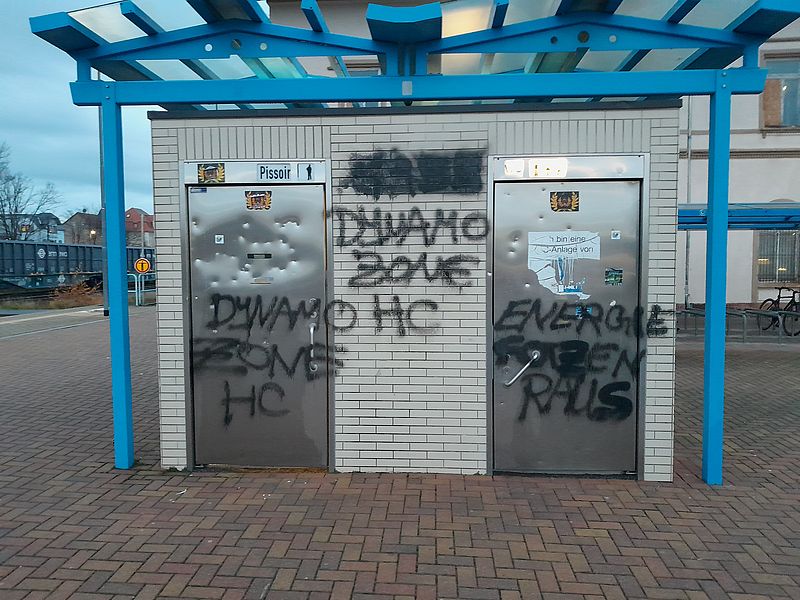 Pissoir
DYNAMO
ZONE
HC
DYNAMO
ZONE
HC
bin eine
-Anlage von
ENERGIE
FOTZEN
RAUS